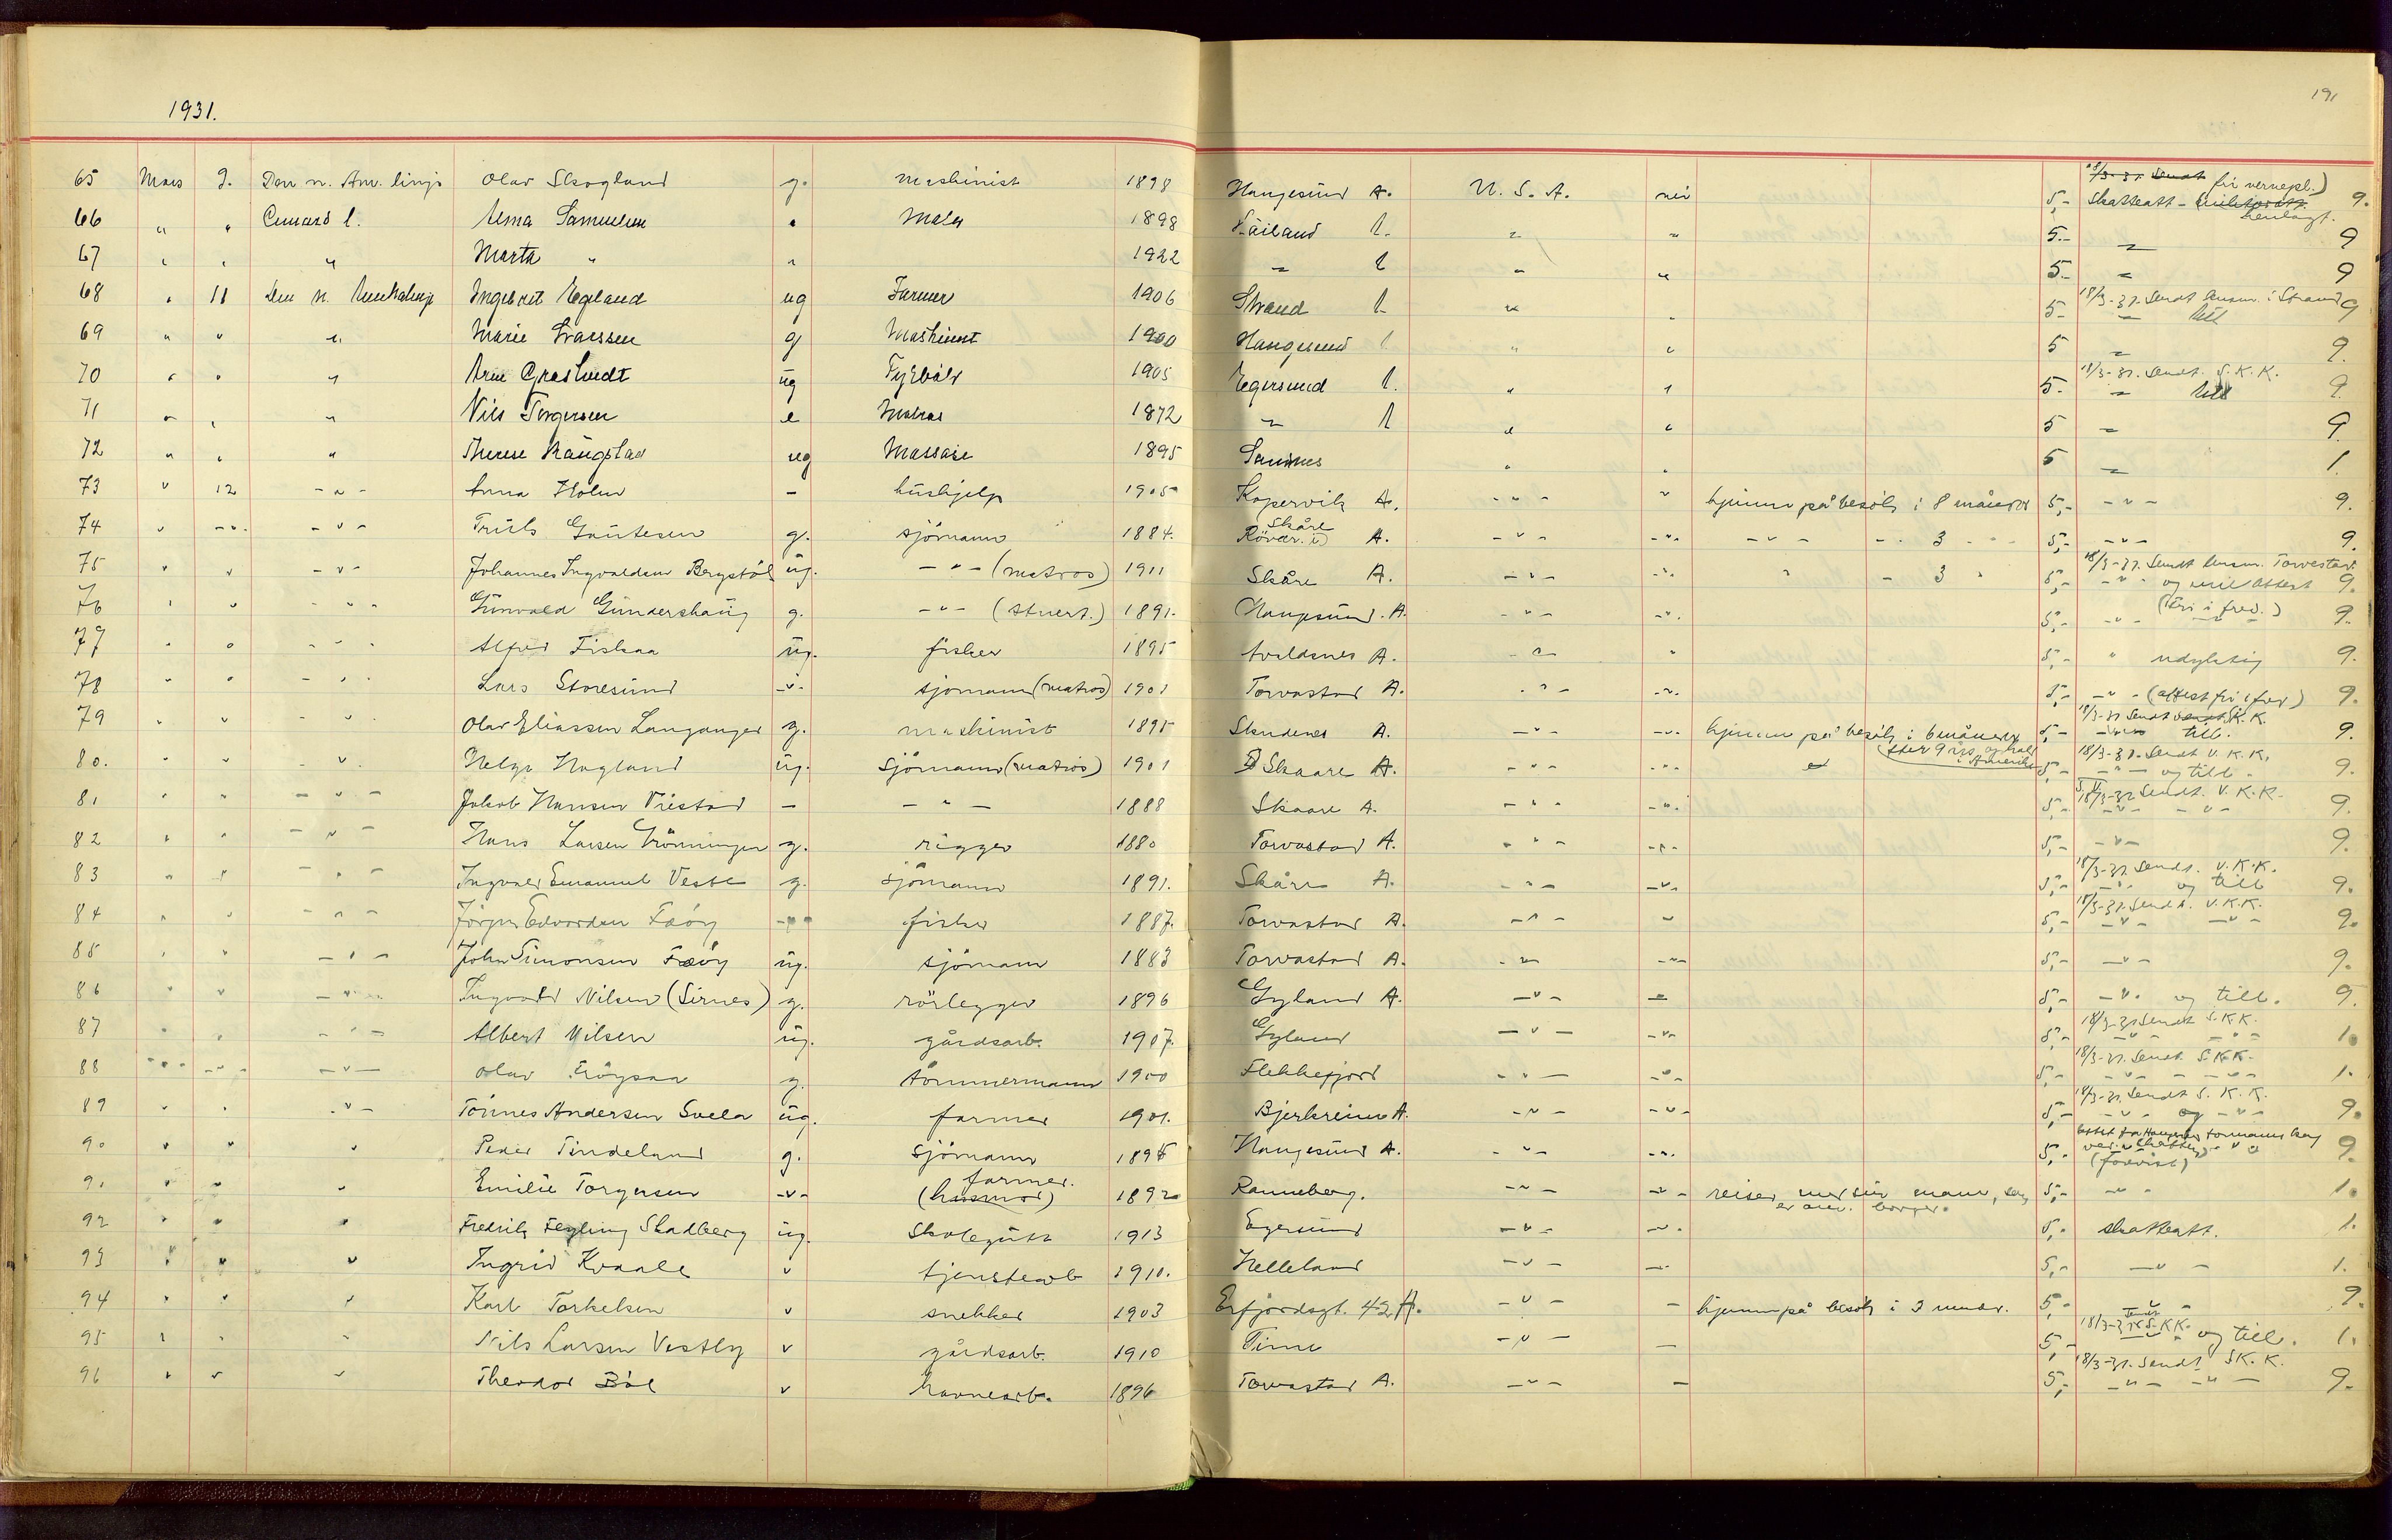 1931.
191
65 Mars 9. Den n. Am. linje Olav Skogland g. maskinist 1898 Haugesund A. U. S. A. nei 5,- Skatteatt - 9.
66 " " Cunard l. Alma Samuelsen " 1898 A. " " 5.- " 9
67 " " " Marta " " 1922 " A " " 5.- " 9
68 " 11 Den n. Amerikalinje Ingebret Egeland ug Farmer 1906 Strand A " " 5- 18/3-31. Sendt lensm. i Strand " till 9
69 " " " Marie g Maskinist 1900 Haugesund A " " 5 " 9.
70 " " " Arne ug Fyrbøter 1905 Egersund A. " " 5.- 18/3-31. Sendt. S.K.K. " till 9.
71 " " " Nils Torgersen e Matros 1872 " A " " 5 " 9.
72 " " " Therese ug Massøse 1895 Sandnes " " 5 " 1.
73 " 12 - " - Anna Holm - hushjelp 1905 Kopervik A. - " - " hjemme på besøk i 8 måneder 5,- - " - 9.
74 " - " - - " - Truls Gautesen g. sjömann 1884. Skåre Rövær. A. - " - - " - - " - - " 3 - " - 5,- - " - 9.
75 " " - " - Johannes Ingvaldsen Bergstöl ug. - " - (matros) 1911 Skåre A. - " - - " - " - 3 " 5,- 18/3-31. Sendt lensm. Torvestad - " - og mil. attest 9.
76 " " - " - Gunvald Gundershaug g. - " - (stuert.) 1891. Haugesund. A. - " - - " - 5,- - " - (Fri i fred.) 9.
77 " " - " - Alfred Fiskaa ug. fisker 1895 Avaldsnes A. - " - " 5,- " udyktig 9.
78 " " - " - Lars Storesund - " - sjömann (matros) 1901 Torvastad A. - " - - " - 5,- - " - (attest fri i fred) 9.
79 " " - " - Olav Eliassen Langanger g. maskinist 1895 Skudenes A. - " - - " - hjemme på besök i 6 måneder 5,- 18/3-31 Sendt S.K.K. - " - till. 9.
80. " " - " - Helge Hagland ug. Sjömann (matros) 1901 Skaare A. - " - - " - efter 9 i Amerika 5,- 18/3-31. Sendt V.K.K. - " - og till. 9.
81 " " - " - Jakob Hansen Vrestad - - " - 1888 Skaare A. - " - - " - 5,- 18/3-31 Sendt. V.K.K. - " - - " - 9.
82 " " - " - Hans Larsen Grönningen g. rigger 1880 Torvastad A. - " - - " - 5,- - " - 9.
83 " " - " - Ingvald Emanuel Veste g. sjömann 1891. Skåre A. - " - - " - 5,- 18/3-31 Sendt. V.K.K. - " - og till 9.
84 " " - " - Jörgen Edvardsen Feöy - " - fisker 1887. Torvastad A. - " - " 5,- 18/3-31. Sendt. V.K.K. - " - - " - 9.
85 " " - " - John Simonsen Feöy ug. sjömann 1883 Torvastad A. - " - - " - 5,- - " - 9.
86 " " - " - Ingvald Nilsen (Sirnes) g. rörlegger 1896 Gyland A. - " - - " - 5,- - " - og till. 9.
87 " " - " - Albert Nilsen ug. gårdsarb. 1907. Gyland - " - - " - 5,- 18/3-31 Sendt S.KK. - " - - " - 1.
88 - " - - " - - " - Olav Fröysaa g. tömmermann 1900 Flekkefjord - " - - " - 5,- 18/3-31. Sendt S.KK. - " - - " - 1.
89 " " - " - Tönnes Andersen Svela ug. farmer 1901. Bjerkreim A. - " - - " - 5,- 18/3-31. Sendt S. K. K. - " - og - " - 9.
90 " " " Peder Tindeland g. Sjömann 1895 Haugesund A. - " - - " - 5,- 9.
91 " " " Emilie Torgersen - " - farmer. (husmor) 1892 Ranneberg. - " - - " - reiser med sin mann, som er am. borger. 5,- - " - 1.
92 " " " Fredrik Feyling Skadberg ug. Skolegutt 1913 Egersund - " - - " - 5,- skatteatt. 1.
93 " " " Ingrid Kvaale " tjenestearb 1910. Helleland - " - - " - 5,- - " - 1.
94 " " " Karl Torkelsen " snekker 1903 Erfjordsgt. 42 A. - " - - hjemme på besök i 3 mndr. 5,- - " - 9.
95 " " " Nils Larsen Vestly " gårdsarb. 1910 Time - " - - 5,- 18/3-31 Sendt S.KK. - " - og till. 1.
96 " " " Theodor " havnearb. 1896 Torvastad A. - " - - 5,- 18/3-31. Sendt SK.K. - " - - " - 9.